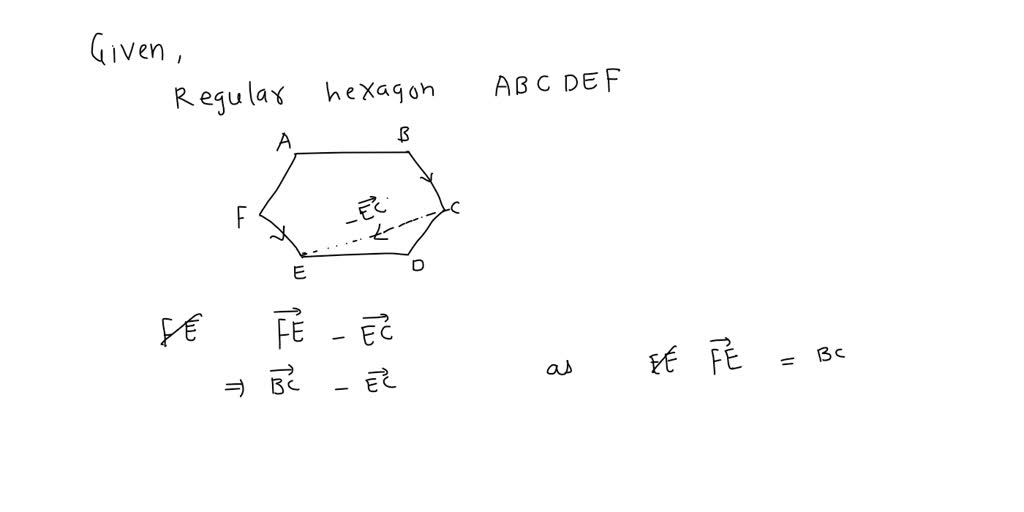 Given,
Regular hexagon ABCDEF
A B
F -E⃗C⃗ C
E D
F⃗E⃗ - E⃗C⃗
⇒ B⃗C⃗ - E⃗C⃗ as F⃗E⃗ = BC